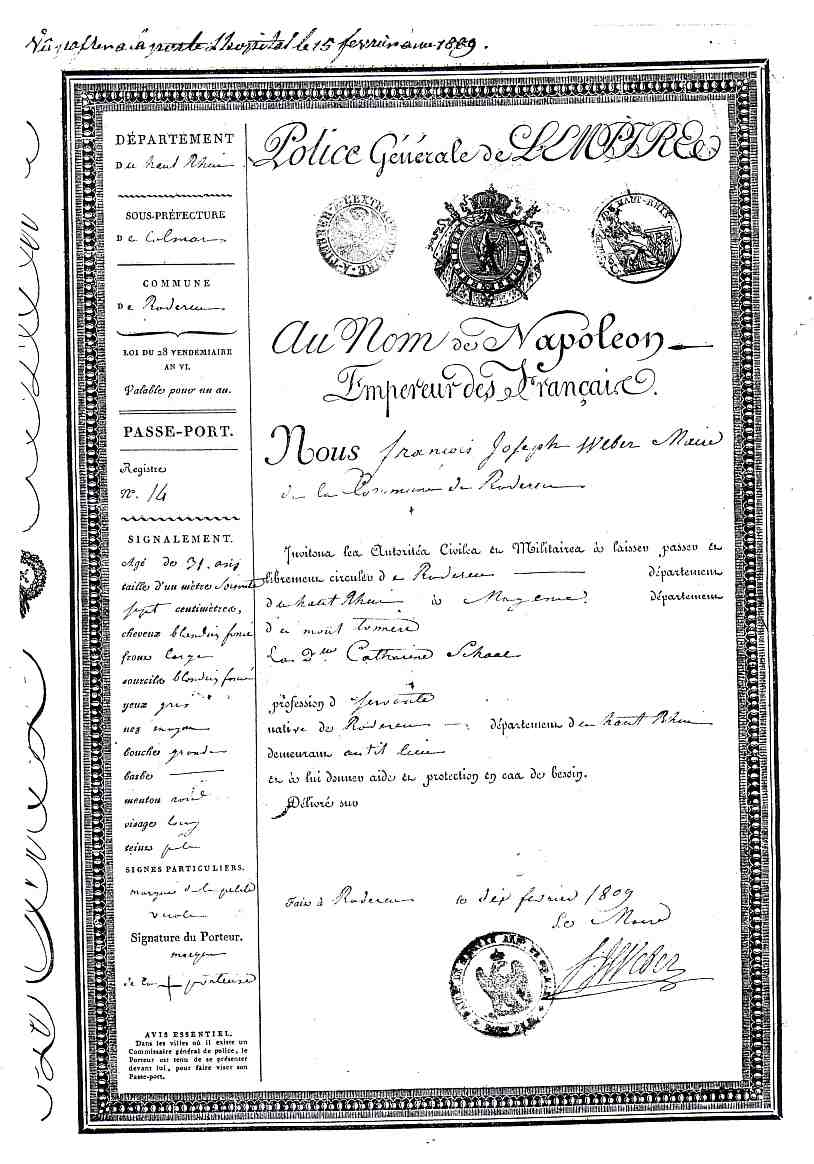 à porte l'hopital le 15 fevrier 1809.
DÉPARTEMENT
Du haut Rhin
SOUS-PRÉFECTURE
De Colmar
COMMUNE
De Roderen
LOI DU 28 VENDÉMIAIRE
AN VI.
Valable pour un an.
PASSE-PORT.
Registre
N°. 14
SIGNALEMENT.
Agé de 31. ans
taille d'un mètre Soixante
sept centimètres,
cheveux blondin foncé
front large
sourcils blondin foncé
yeux gris
nez moyen
bouche grande
barbe
menton rond
visage long
teint pale
SIGNES PARTICULIERS.
marques de la petite
verole
Signature du Porteur.
marque
de la + porteuse
AVIS ESSENTIEL.
Dans les villes où il existe un
Commissaire général de police, le
Porteur est tenu de se présenter
devant lui, pour faire viser son
Passe-port.
Police Générale de L'EMPIRE.
A TIMBRER A L'EXTRAORDINAIRE
HAUT-RHIN
Au Nom de Napoleon
Empereur des Français.
Nous françois Joseph Weber Maire
de la Commune de Roderen
Invitons les Autorités Civiles et Militaires à laisser passer et
librement circuler de Roderen département
du haut Rhin à Mayence département
du mont tonnere
La Dlle Catharine Schaal
profession de servante
native de Roderen département du haut Rhin
demeurant audit lieu
et à lui donner aide et protection en cas de besoin.
Délivré sur
Fait à Roderen le dix fevrier 1809
Le Maire
Weber